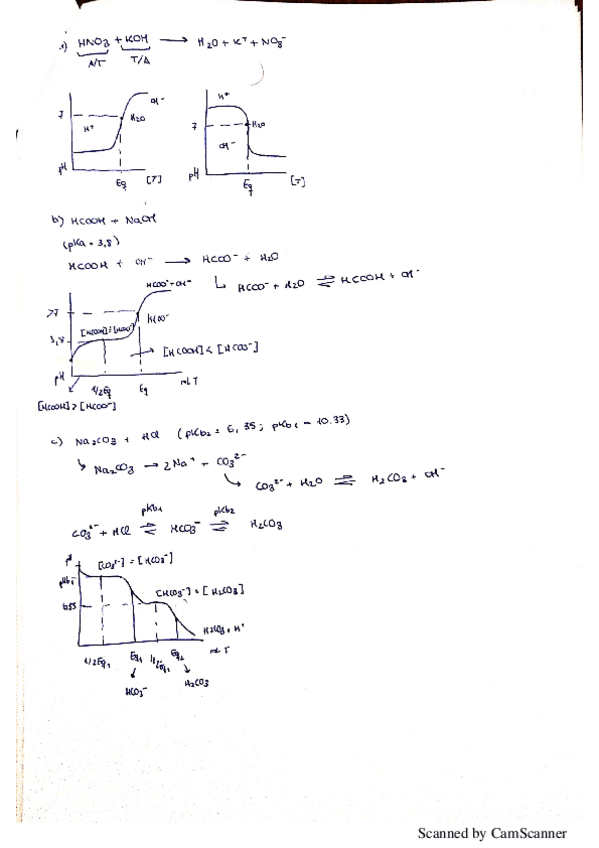 a) HNO3 + KOH → H2O + K+ + NO3-
A/T T/A
OH-
7 H2O
H+
pH
Eq [T]
H+
7 H2O
OH-
pH
Eq [T]
b) HCOOH + NaOH
(pKa = 3,8)
HCOOH + OH- → HCOO- + H2O
↳ HCOO- + H2O ⇌ HCOOH + OH-
HCOO- + OH-
>7 HCOO-
3,8 [HCOOH] = [HCOO-]
→ [HCOOH] < [HCOO-]
pH
1/2 Eq Eq mL T
[HCOOH] > [HCOO-]
c) Na2CO3 + HCl (pKb2 = 6,35; pKb1 = 10.33)
↳ Na2CO3 → 2Na+ + CO32-
↳ CO32- + H2O ⇌ H2CO3 + OH-
pKb1 pKb2
CO32- + HCl ⇌ HCO3- ⇌ H2CO3
[CO32-] = [HCO3-]
pKb1
[HCO3-] = [H2CO3]
H2CO3 + H+
1/2 Eq1 Eq1 Eq2 mL T
HCO3- H2CO3
Scanned by CamScanner